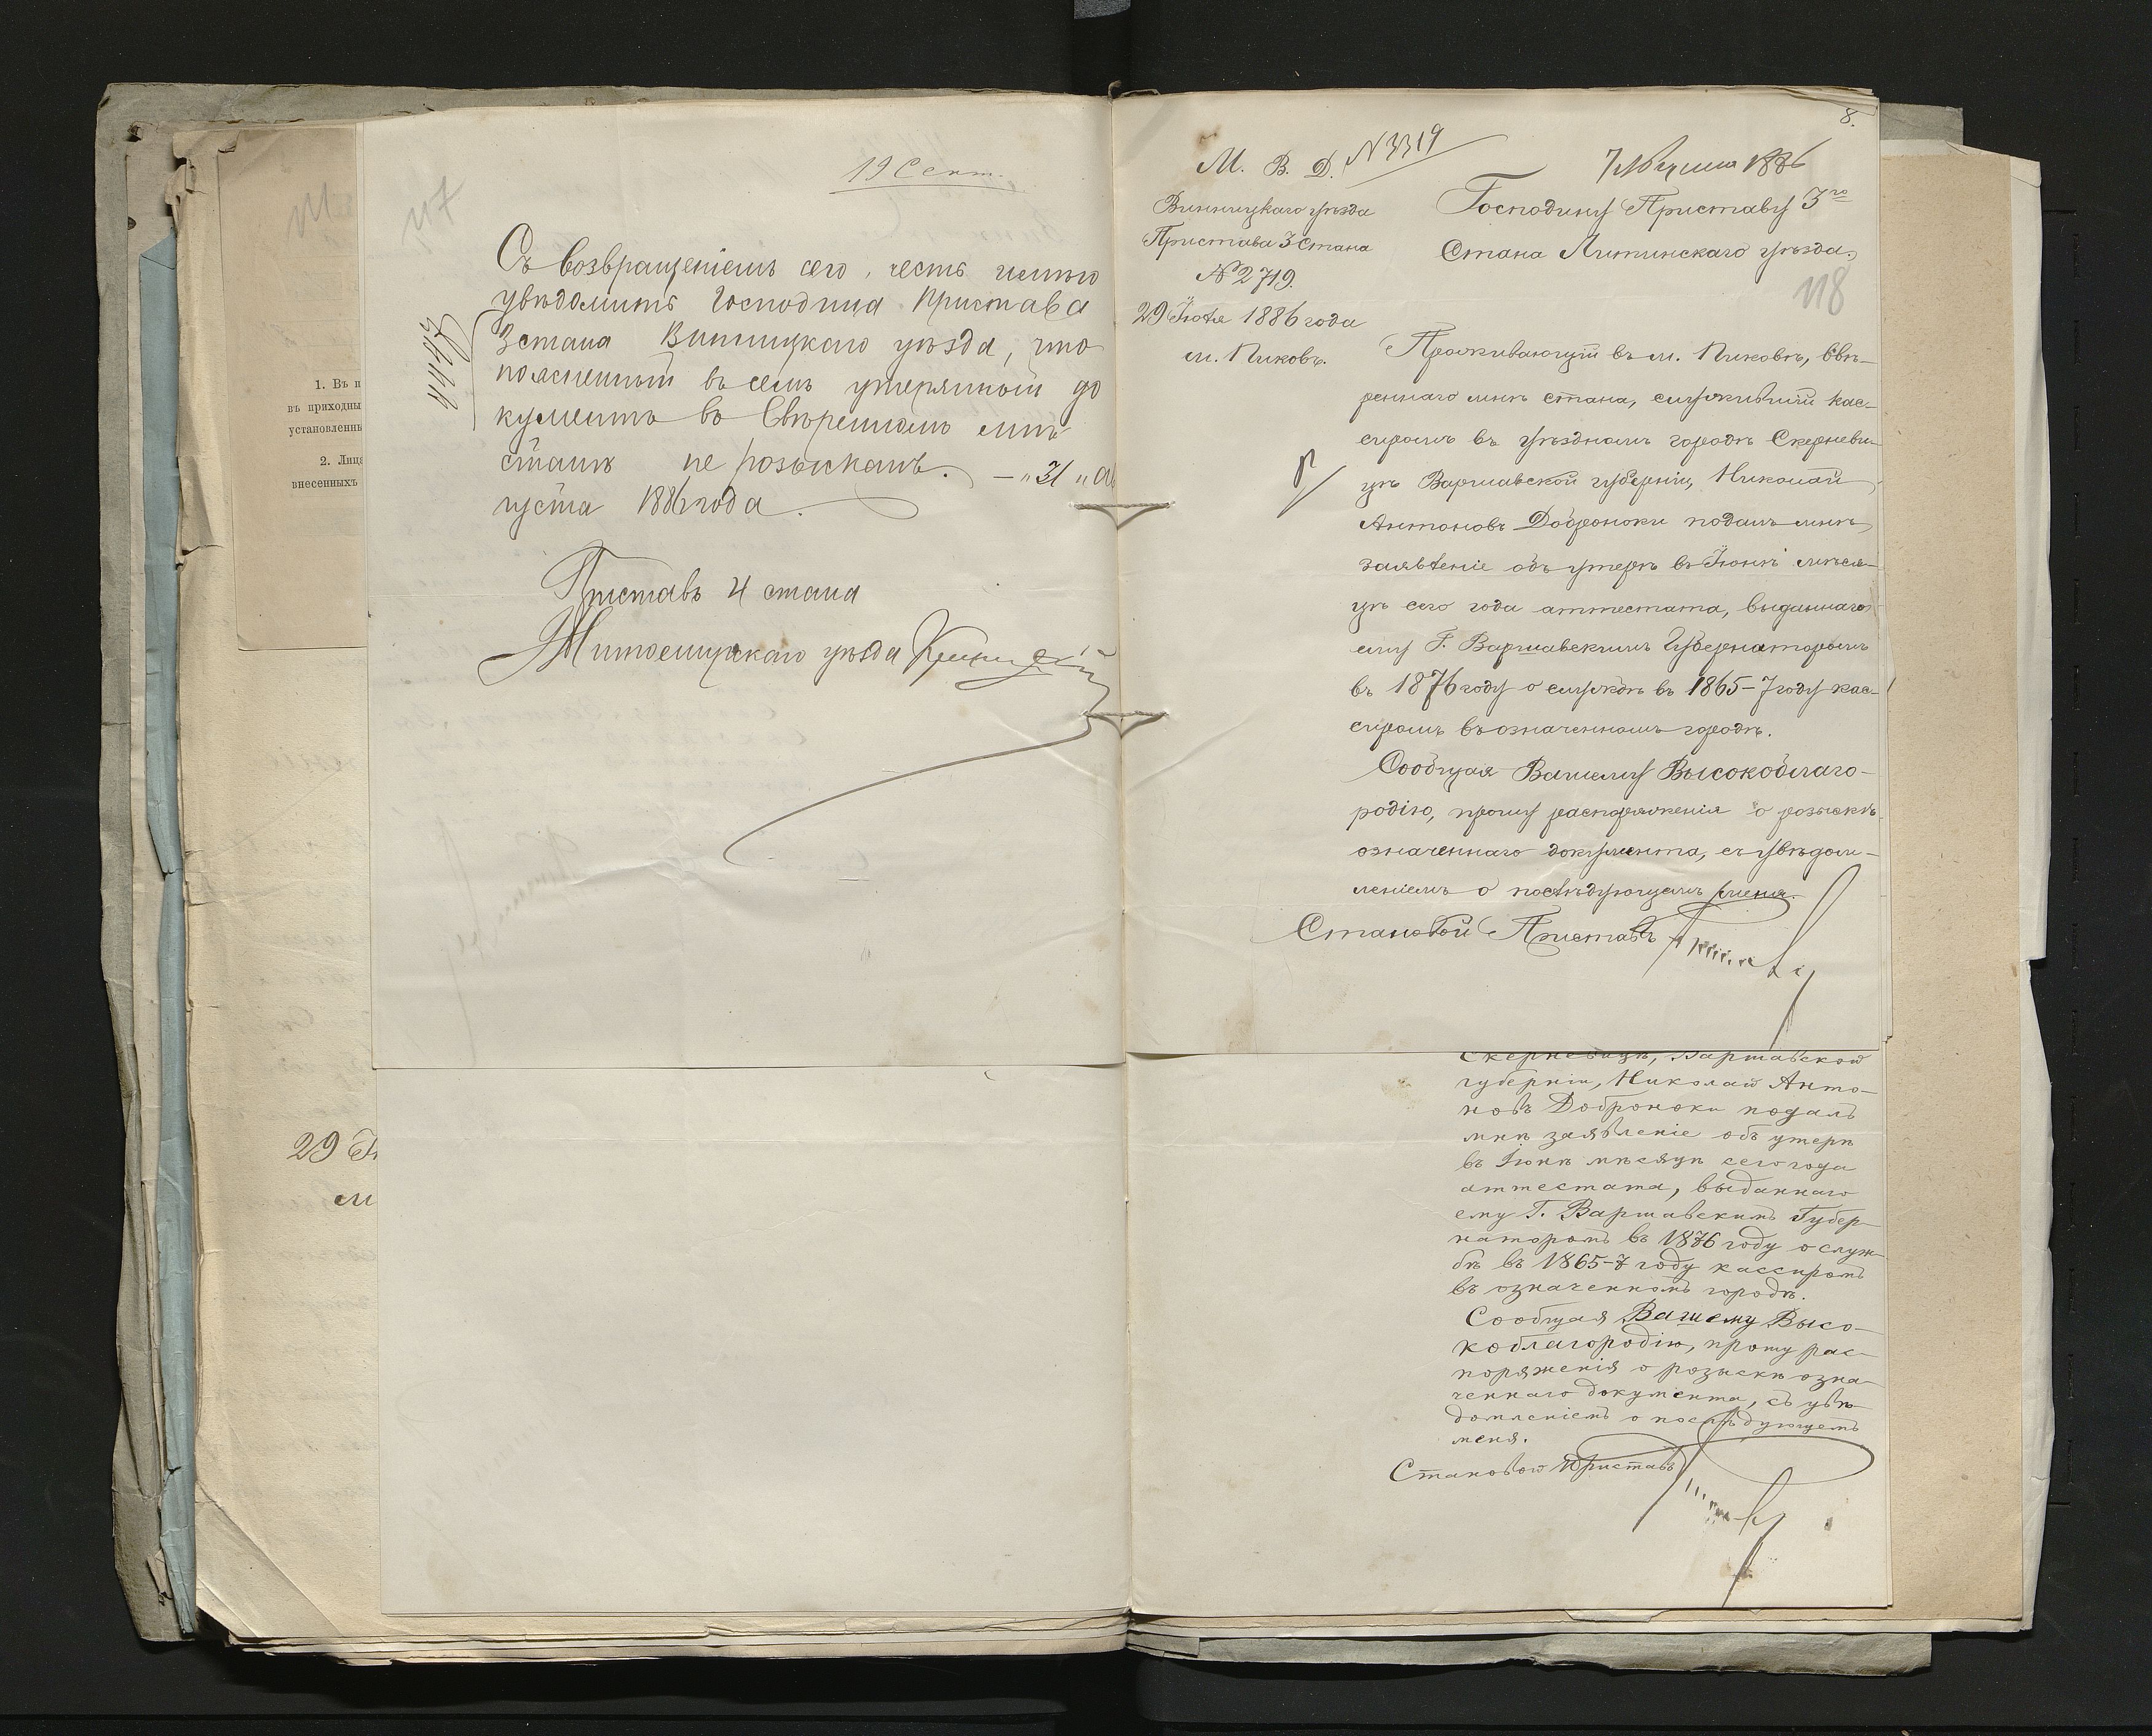 1. Въ п
въ приходны
установленны
2. Лица
внесенныхъ
29 Ію
м
19 Сент.
117
Съ возвращеніемъ сего, честь имѣю
увѣдомить Господина Пристава
3 стана Винницкаго уѣзда, что
поясненный въ семъ утерянный до
кументъ во ввѣренномъ мнѣ
станѣ не розысканъ. — "31" Ав
густа 1886 года.
Приставъ 4 стана
Житомирскаго уѣзда
8.
М. В. Д. N 3319
1886
Винницкаго уѣзда
Пристава 3 Стана
№ 2719.
29 Іюля 1886 года
м. Пиковъ.
Господину Приставу 3го
Стана Литинскаго уѣзда.
118
Проживающій въ м. Пиковѣ, ввѣ-
реннаго мнѣ стана, служившій кас-
сиромъ въ уѣздномъ городѣ Скерневи-
цѣ Варшавской губерніи, Николай
Антоновъ Доброноки подалъ мнѣ
заявленіе объ утерѣ въ Іюнѣ мѣся-
цѣ сего года аттестата, выданнаго
ему Г. Варшавскимъ Губернаторомъ
въ 1876 году о службѣ въ 1865-7 году кас-
сиромъ въ означенномъ городѣ.
Сообщая Вашему Высокоблаго-
родію, прошу распоряженія о розыскѣ
означеннаго документа, съ увѣдом-
леніемъ о послѣдующемъ меня.
Становой Приставъ
Скерневицѣ, Варшавской
губерніи, Николай Анто-
новъ Доброноки подалъ
мнѣ заявленіе объ утерѣ
въ Іюнѣ мѣсяцѣ сего года
аттестата, выданнаго
ему Г. Варшавскимъ Губер-
наторомъ въ 1876 году о служ-
бѣ въ 1865-7 году кассиромъ
въ означенномъ городѣ.
Сообщая Вашему Высо-
коблагородію, прошу рас-
поряженія о розыскѣ озна-
ченнаго документа, съ увѣ-
домленіемъ о послѣдующемъ
меня.
Становой Приставъ